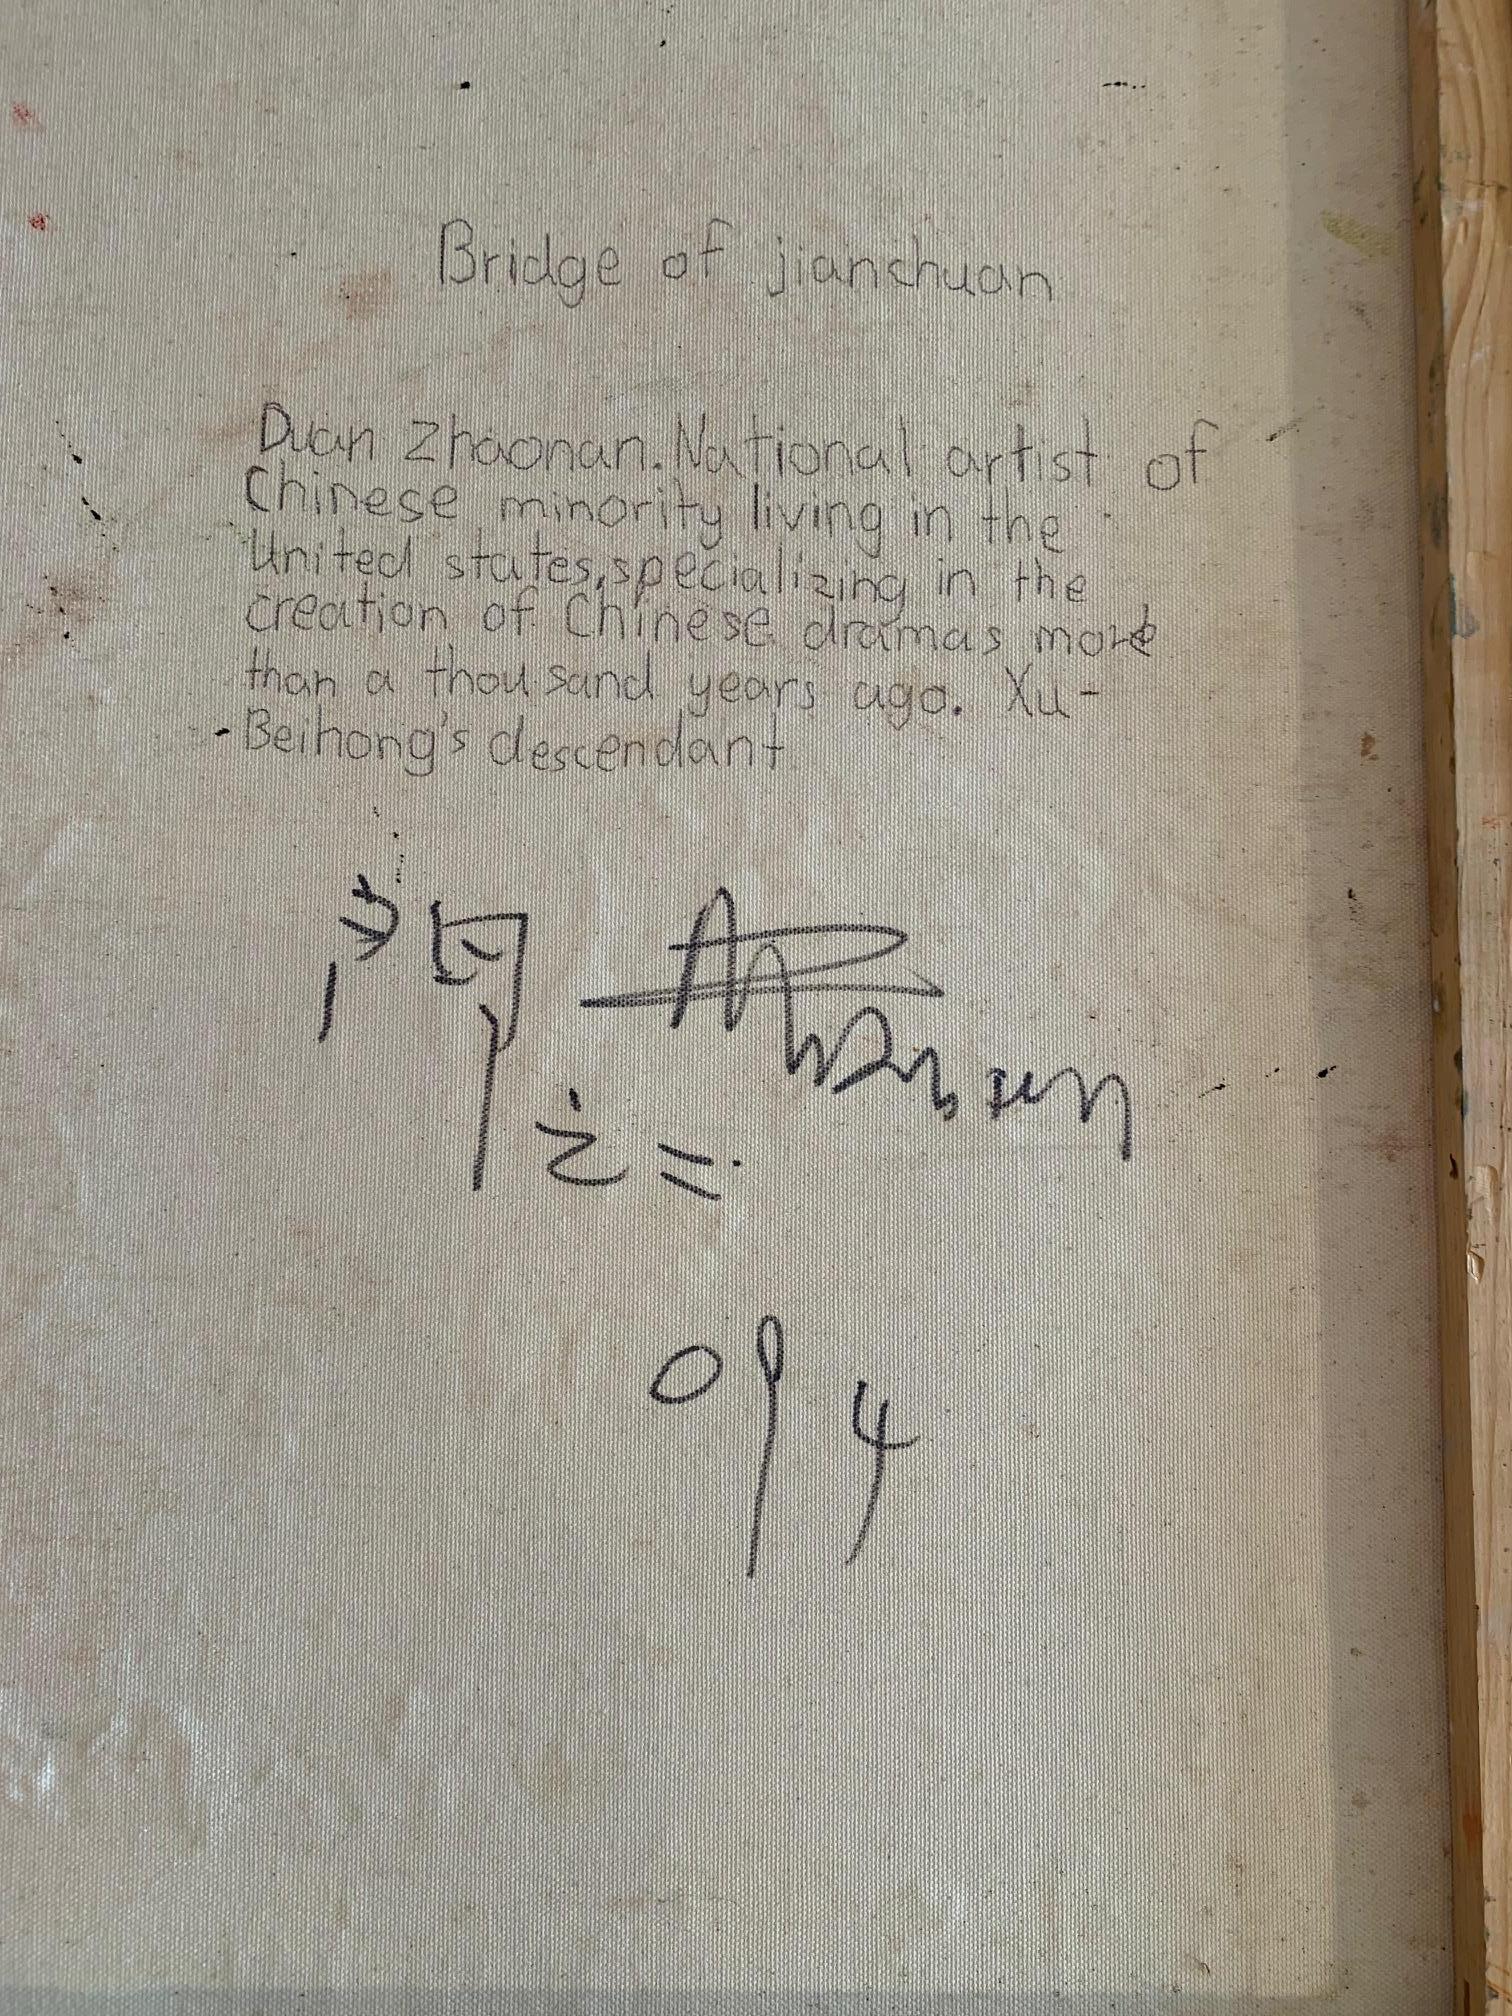 Bridge of jianchuan
Duan Zhaonan. National artist of
Chinese minority living in the
United states, specializing in the
creation of Chinese dramas more
than a thousand years ago. Xu-
Beihong's descendant
094